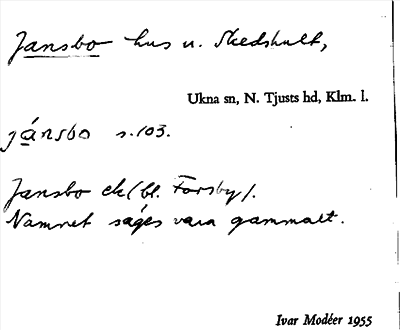 Jansbo hus u. Skedshult,
Ukna sn, N. Tjusts hd, Klm. l.
jánsbo s. 103.
Jansbo ek (bl. Forsby).
Namnet säges vara gammalt.
Ivar Modéer 1955